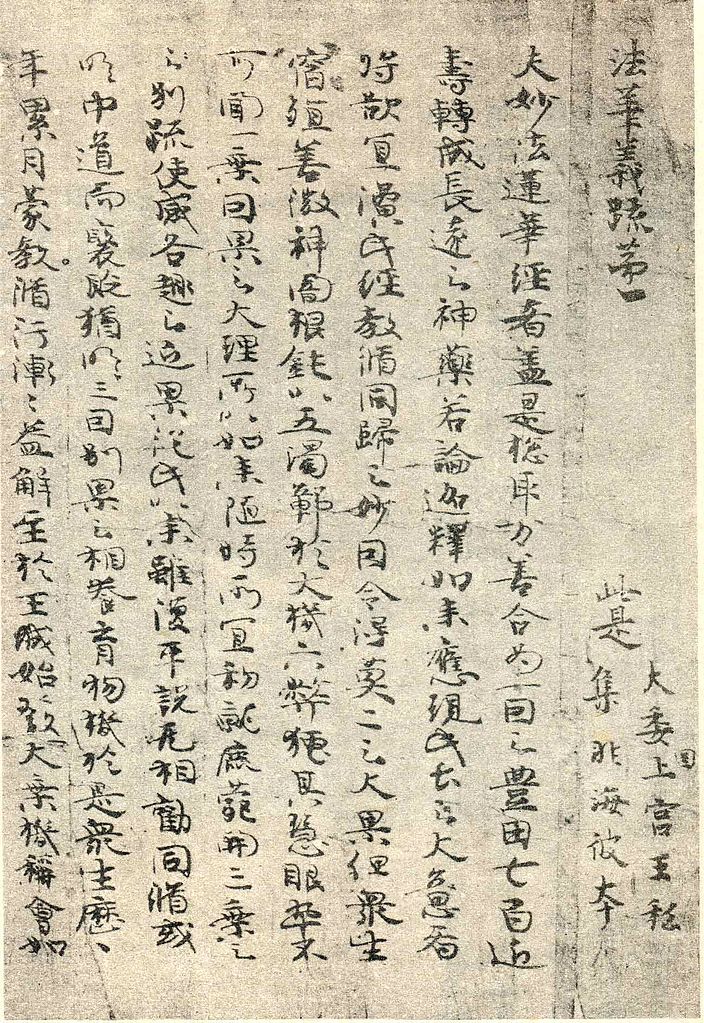 法華義疏第一
此是
大委国上宮王私
集非海彼本
夫妙法蓮華經者蓋是惣取万善合為一因之豊田七百近
壽轉成長遠之神藥若論迦釋如来應現此土之大意者
将欲宜演此經教脩同歸之妙因令得莫二之大果但衆生
宿殖善微神闇根鈍以五濁鄣於大機六弊掩其慧眼卒不
可聞一乗因果之大理所以如来随時所宜初就鹿菀開三乗之
別疏使感各趣之近果従此以来雖復平説无相勧同脩或
明中道而褒貶猶明三因別果之相養育物機於是衆生歴、
年累月蒙教脩行漸ゝ益解至於王城始發大乗機稱會如